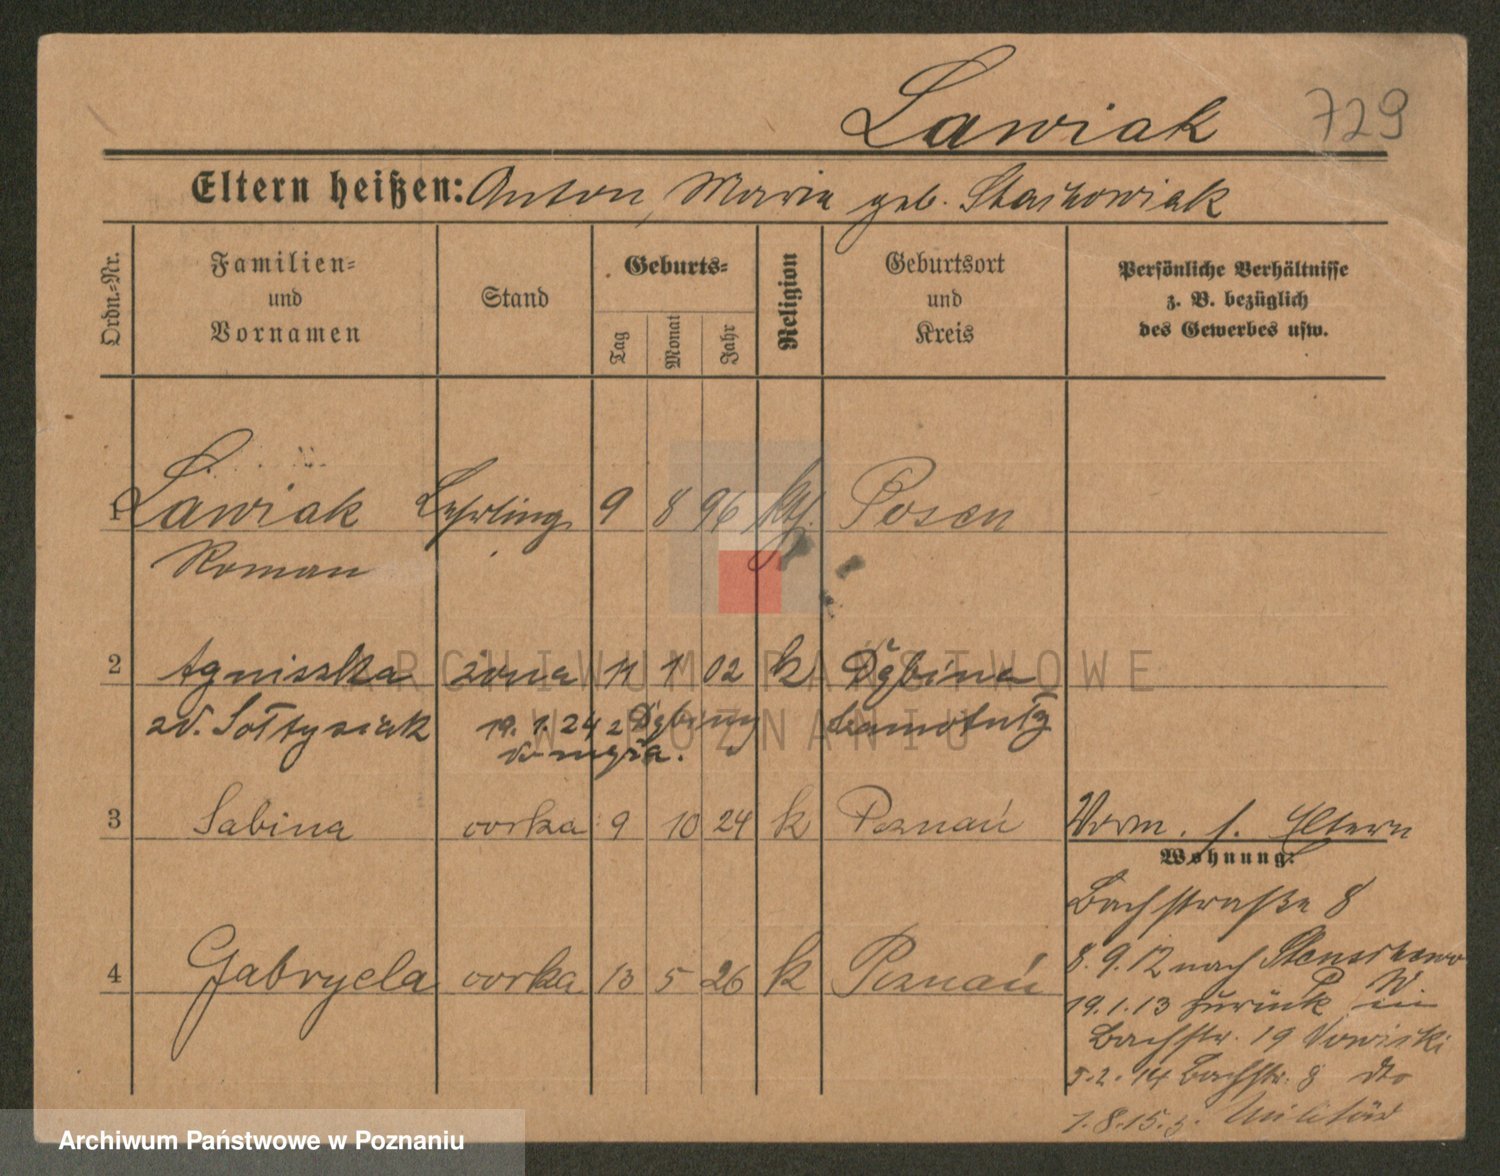 Lawiak 729
Eltern heißen: Anton, Maria geb. Stachowiak
Ordn.-Nr.
Familien-
und
Vornamen
Stand
Geburts-
Tag
Monat
Jahr
Religion
Geburtsort
und
Kreis
Persönliche Verhältnisse
z. B. bezüglich
des Gewerbes usw.
1 Lawiak Lehrling 9 8 96 kth. Posen
Roman
2 Agniszka żona 11 1 02 k Dębina
zd. Sołtysiak 19.1.24 z Dębiny Szamotuły
do męża.
3 Sabina córka 9 10 24 k Poznań
Verm. s. Eltern
Wohnung:
Bachstraße 8
4 Gabryela córka 13 5 26 k Poznań
8.9.12 nach
19.1.13 zurück
Bachstr. 19
5.2.14 Bachstr. 8 dto
1.8.15 z. Militär
ARCHIWUM PAŃSTWOWE
W POZNANIU
Archiwum Państwowe w Poznaniu